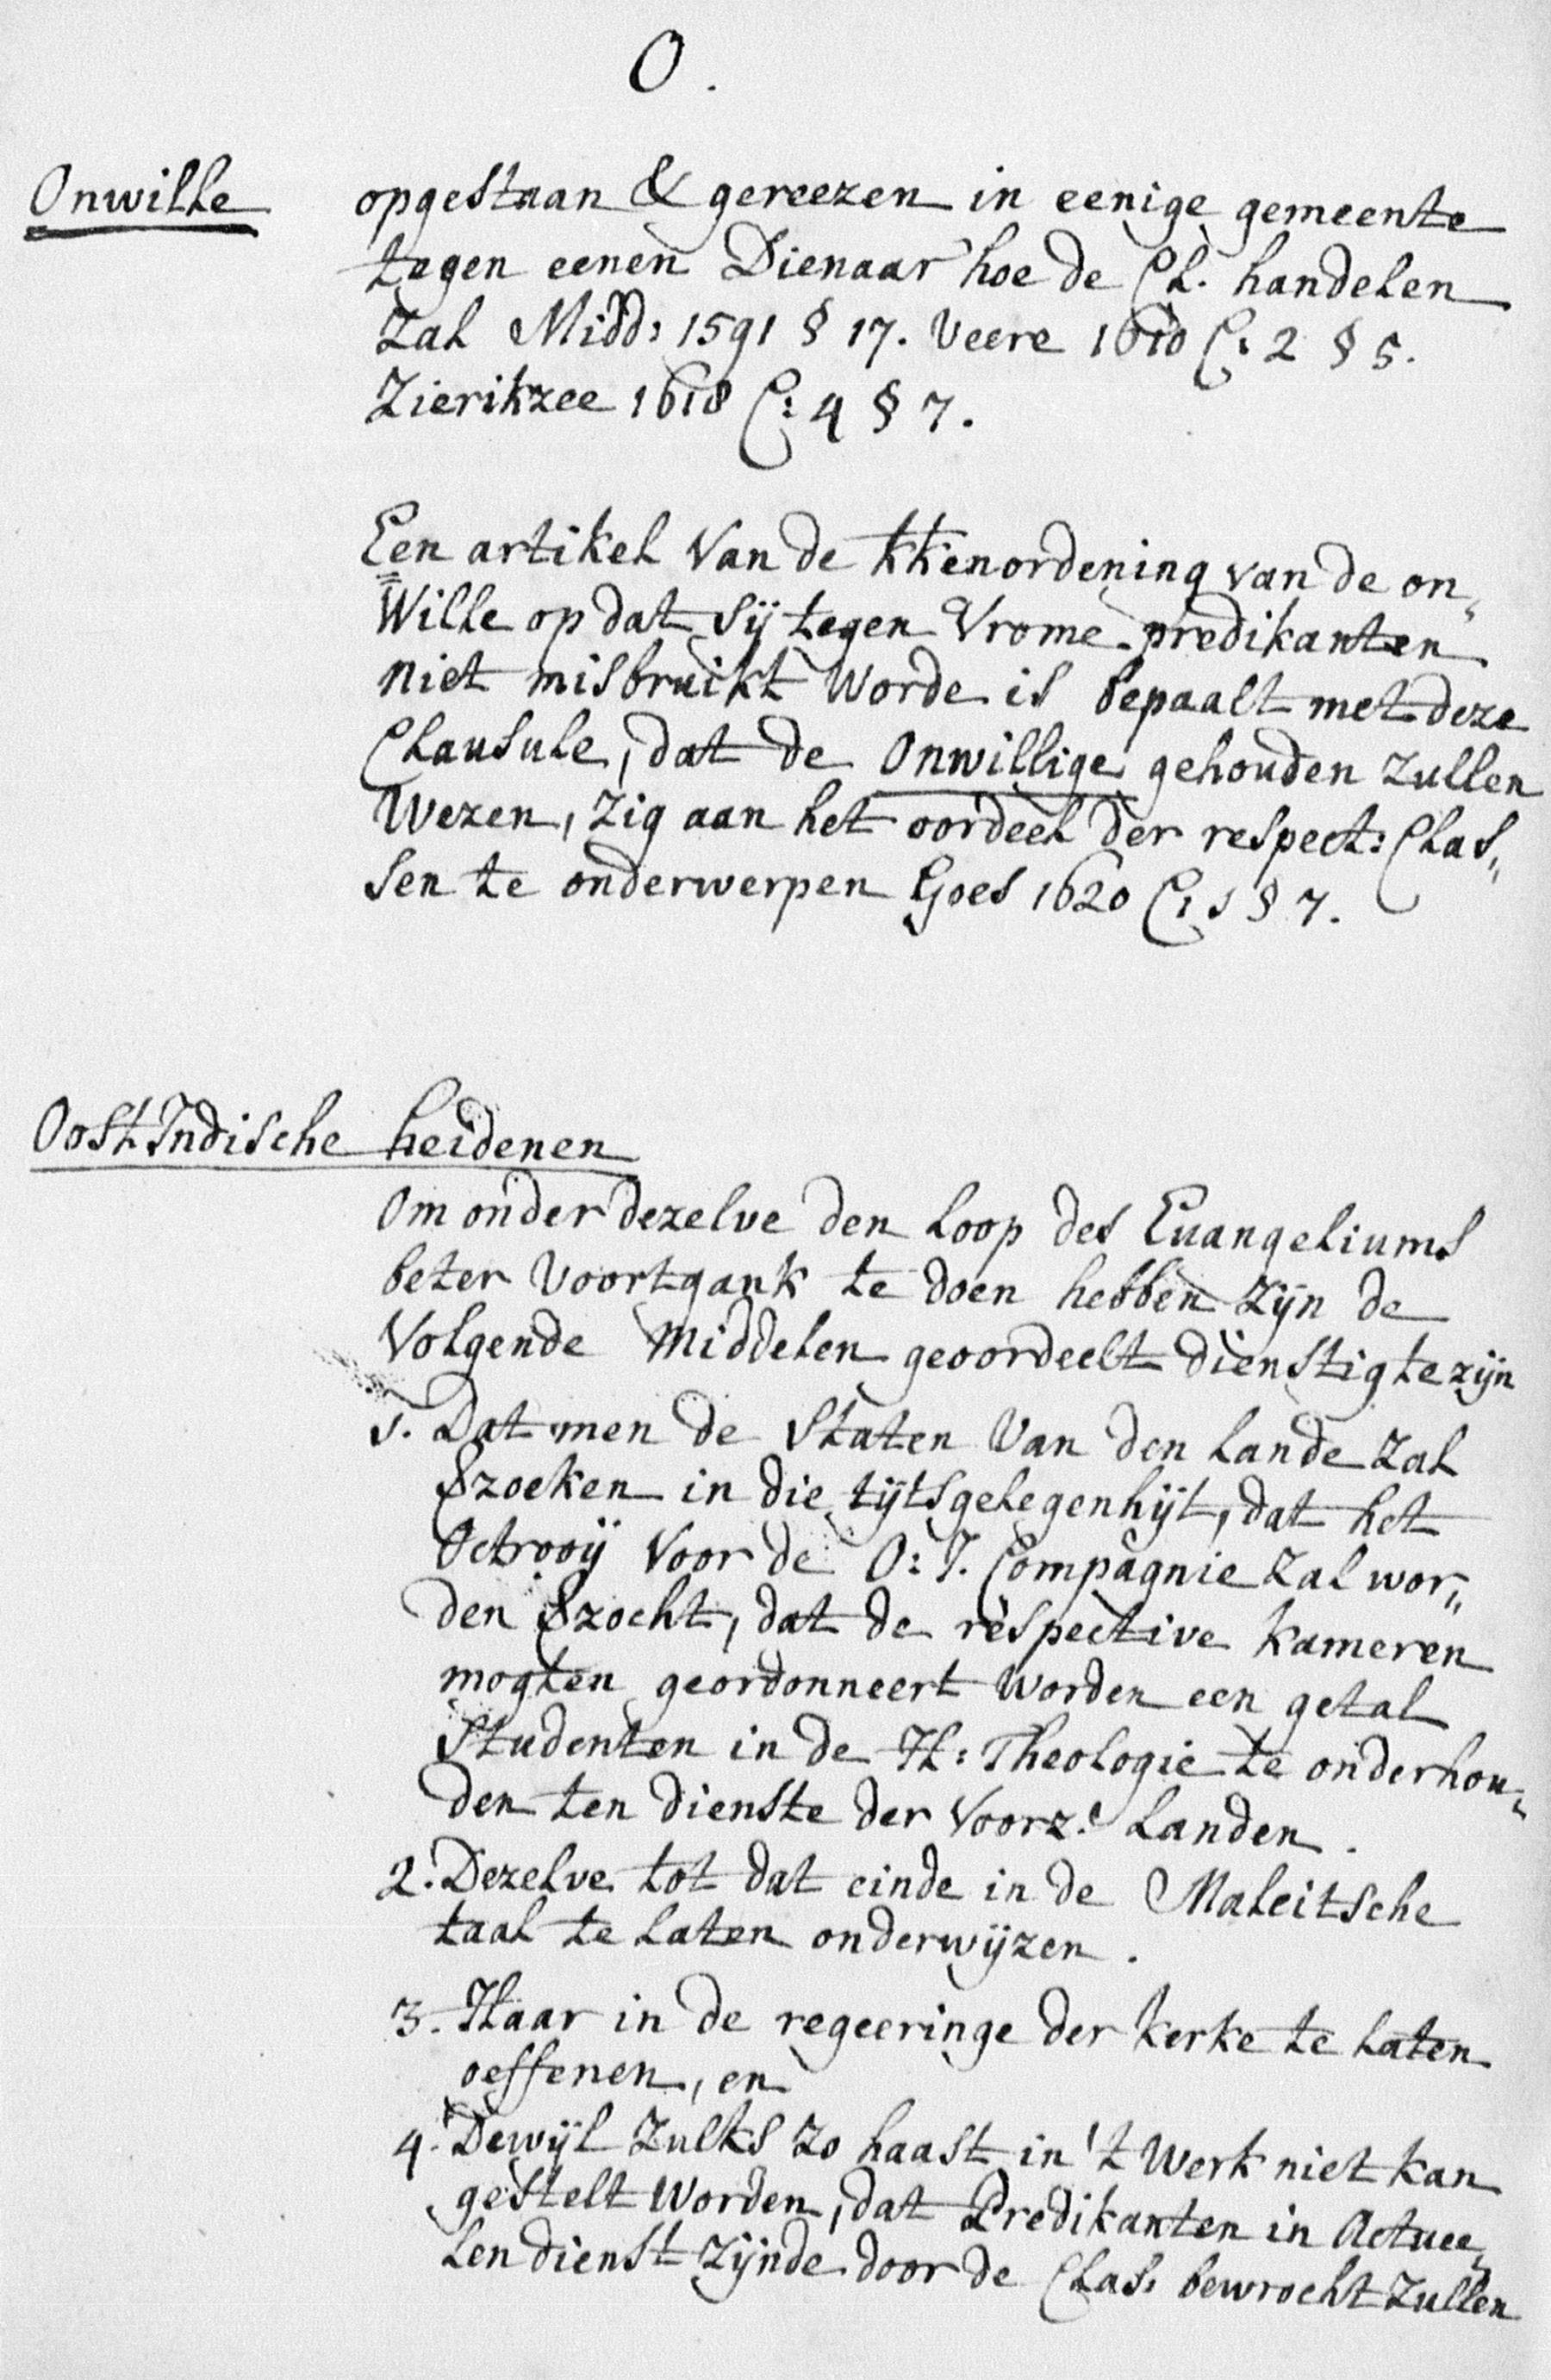 O.
Onwille opgestaan & gereezen in eenige gemeente
tegen eenen Dienaar hoe de Cl. handelen
zal Midd: 1591 § 17. Veere 1610 C: 2 § 5.
Zierikzee 1618 C: 4 § 7.
Een artikel van de kkenordening van de on„
Wille op dat sij tegen Vrome predikanten
niet misbruikt worde is bepaalt met deze
Clausule, dat de Onwillige gehouden zullen
Wezen, zig aan het oordeel der respect: Clas„
sen te onderwerpen Goes 1620 C: 1 § 7.
Oost Indische heidenen
Om onder dezelve den loop des Euangeliums
beter voortgank te doen hebben zijn de
Volgende middelen geoordeelt dienstig te zijn
1. Dat men de Staten van den Lande zal
&zoeken in die tijtsgelegenhijt, dat het
Octrooij voor de O: I. Compagnie zal wor„
den &zocht, dat de respective kameren
mogten geordonneert worden een getal
Studenten in de H: Theologie te onderhou„
den ten dienste der voorz: Landen.
2. Dezelve tot dat einde in de Maleitsche
taal te laten onderwijzen.
3. Haar in de regeeringe der kerke te laten
oeffenen, en
4. Dewijl zulks zo haast in 't werk niet kan
gestelt worden, dat Predikanten in Actuee„
len dienst zijnde door de Clas: bewrocht zullen